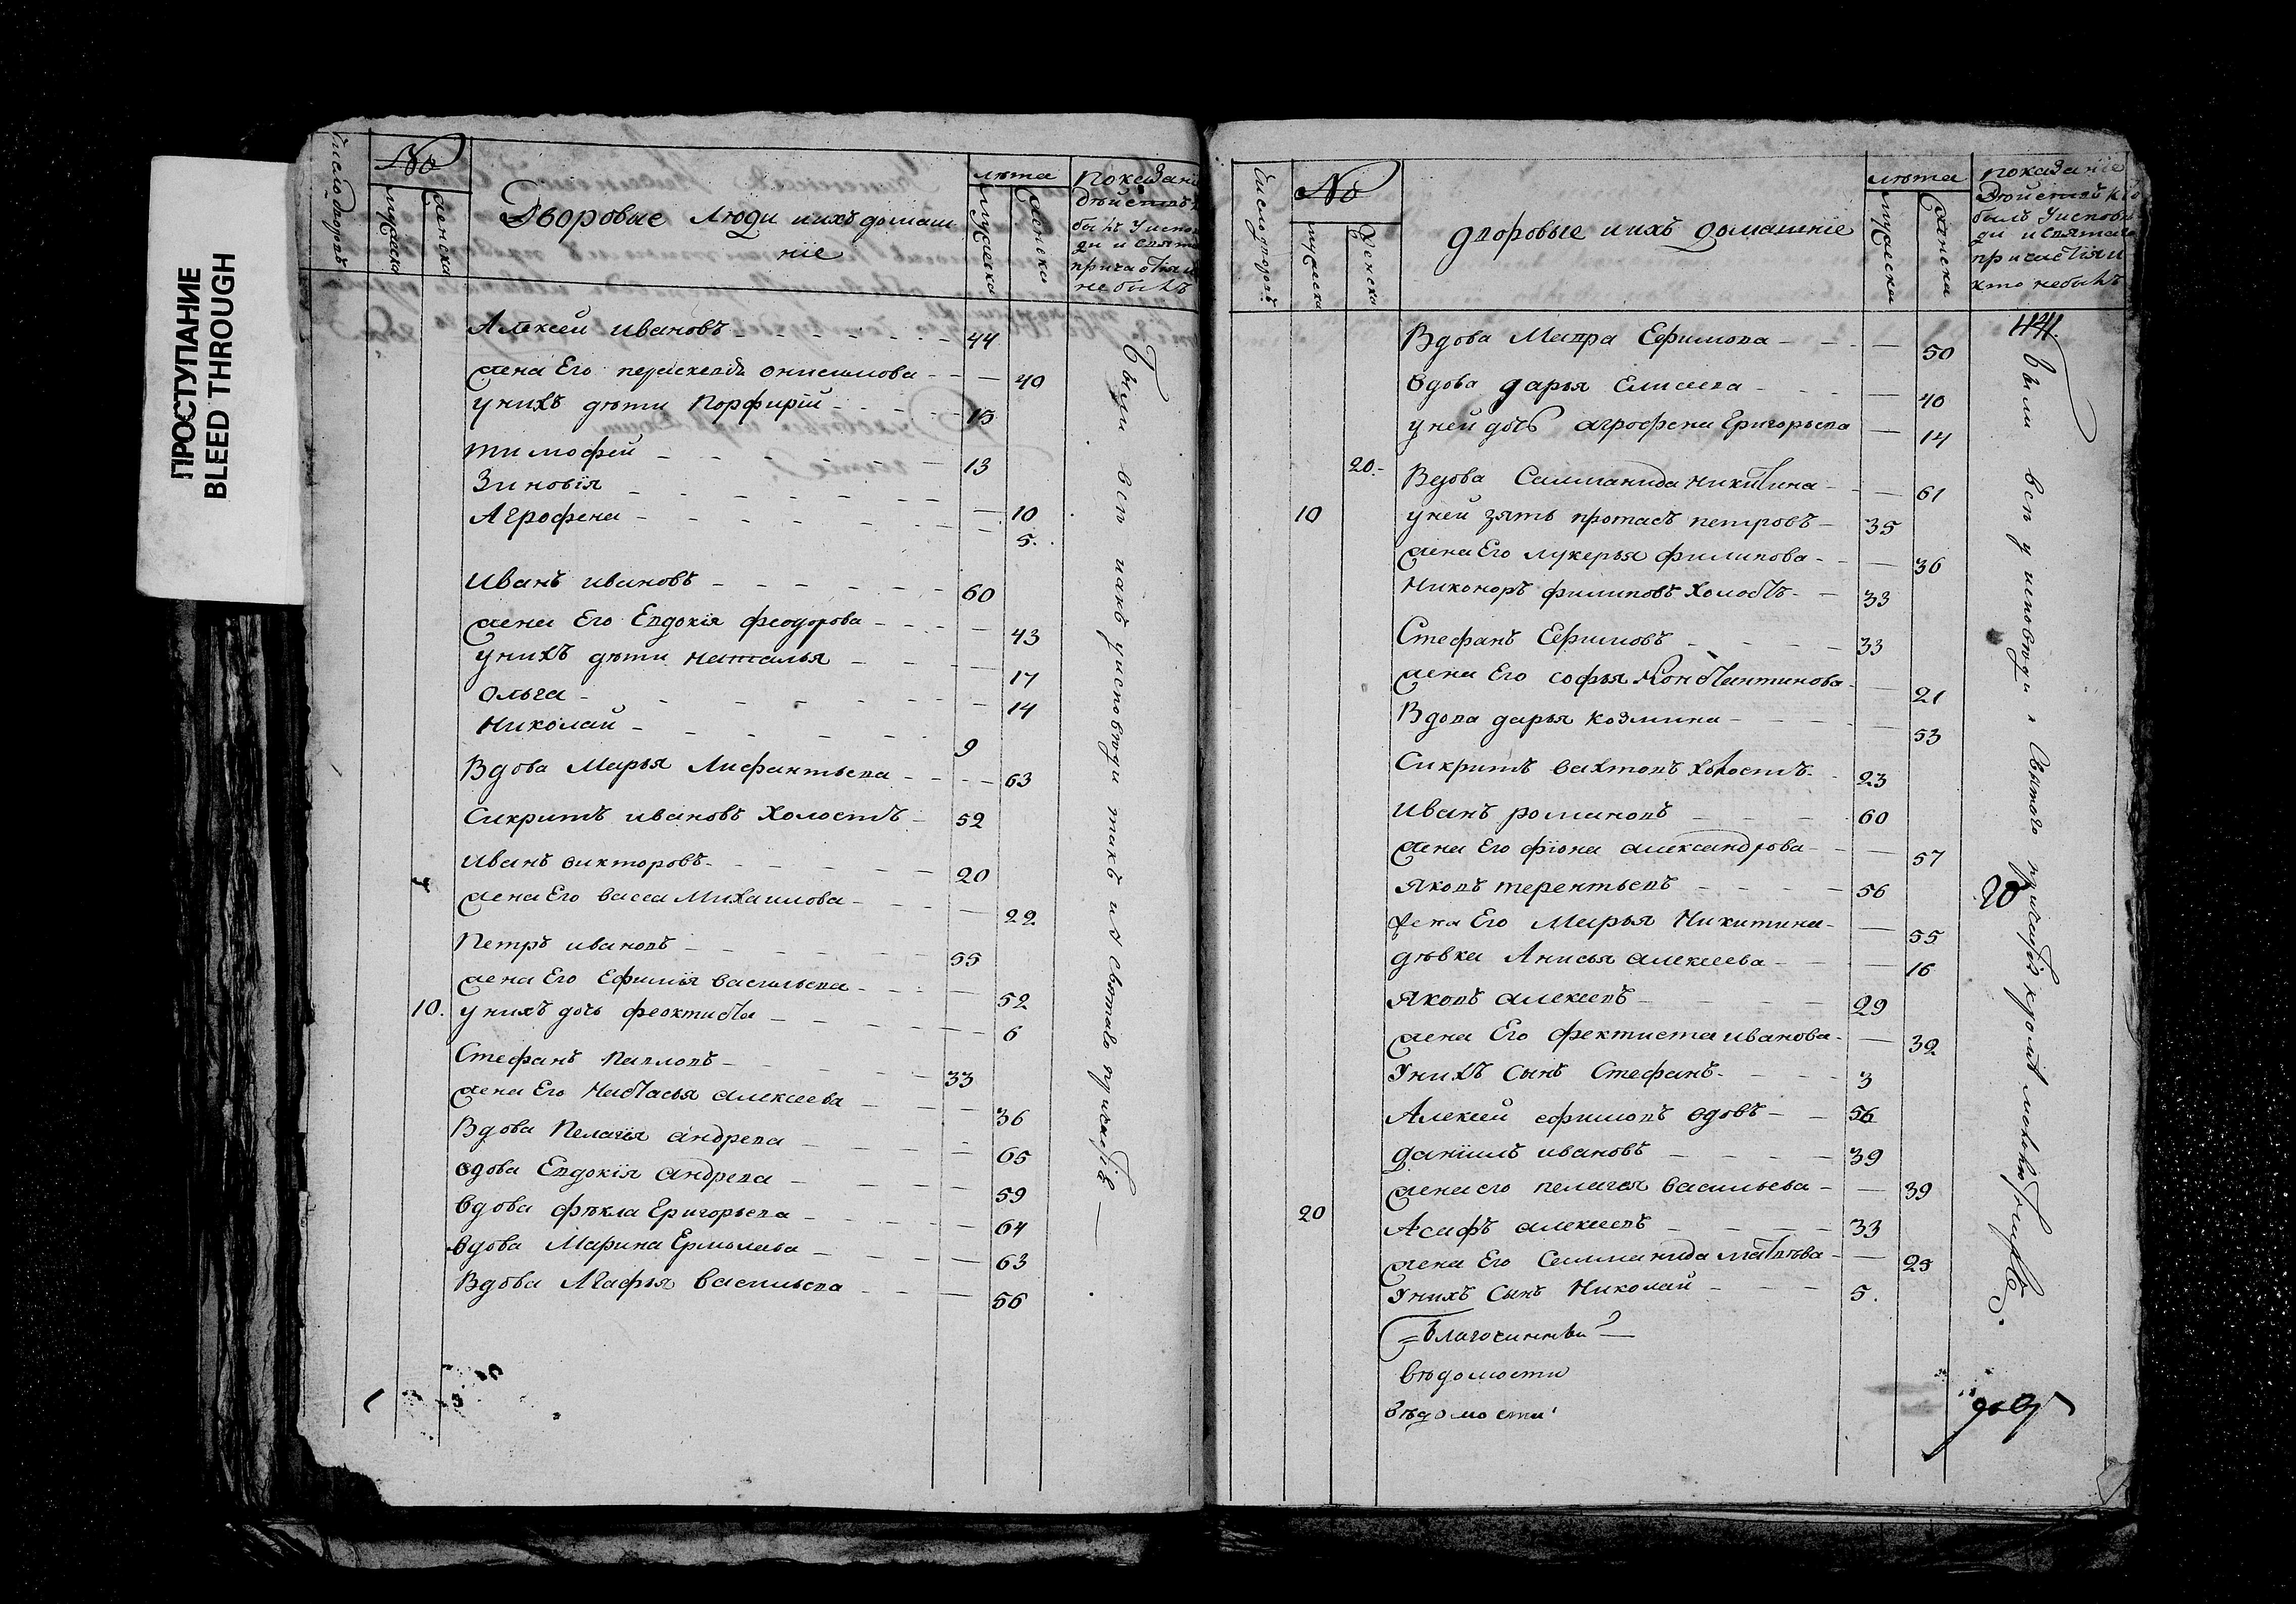 ПРОСТУПАНИЕ
BLEED THROUGH
Число дворовъ
№
мужеска
женска
Дворовые люди ихъ домаш
ніе
лѣта
мужеска
женска
показаніе
дѣйствъ
былъ у испо
ди и свята
причастія и
не былъ
Алексей Ивановъ 44
жена Его параскевія онисимова 40
у нихъ дѣти Порфирій 15
тимофей 13
Зиновія 10
Агрофена 5.
Иванъ ивановъ 60
жена Его Евдокія феодорова 43
у нихъ дѣти наталья 17
Ольга 14
Николай 9
Вдова Марья Лифантьева 63
Сикритъ ивановъ Холостъ 52
Иванъ викторовъ 20
жена Его васса Михаилова 22
Петръ ивановъ 55
жена Его Ефимія васильева 52
10. у нихъ дочь феоктиста 6
Стефанъ Павловъ 33
жена Его Настасья алексеева 36
Вдова Пелагія андрева 65
вдова Евдокія андрева 59
вдова фѣкла Григорьева 64
вдова Марина Ермолаева 63
Вдова Агафья васильева 56
Были вси какъ у исповѣди такъ и у святаго причастія
Число дворовъ
№
мужеска
женска
дворовые ихъ домашніе
лѣта
мужеска
женска
показаніе
дѣйствъ кто
былъ у испов
ди и святаго
причастія и
кто не былъ
Вдова Мавра Ефимова 50
вдова дарья Елисеева 40
у ней дочь агрофена Григорьева 14
20. Вдова Саломанида никитина 61
10 у ней зять протасъ петровъ 35
жена Его лукерья филипова 36
Никоноръ филиповъ холостъ 33
Стефанъ Ефимовъ 33
жена Его софья Константинова 21
Вдова дарья козмина 53
Сикритъ вахтовъ холостъ 23
Иванъ романовъ 60
жена Его фіона александрова 57
Яковъ терентьевъ 56
жена Его Марья Никитина 55
дѣвка Анисья алексеева 16
Яковъ алексеевъ 29
жена Его фектиста иванова 32
У нихъ сынъ Стефанъ 3
Алексей ефимовъ вдовъ 56
даніилъ ивановъ 39
жена его пелагея васильева 39
20 Асафъ алексеевъ 33
жена Его Саломанида матвѣва 25
У нихъ сынъ Николай 5.
Благочинны
вѣдомости
вѣдомости
Были вси у исповѣди и святаго причастія кромѣ
20